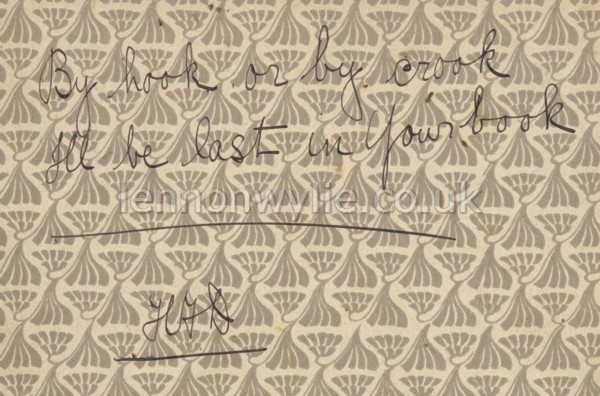 By hook or by crook
I'll be last in your book
lennonwylie.co.uk
HFD